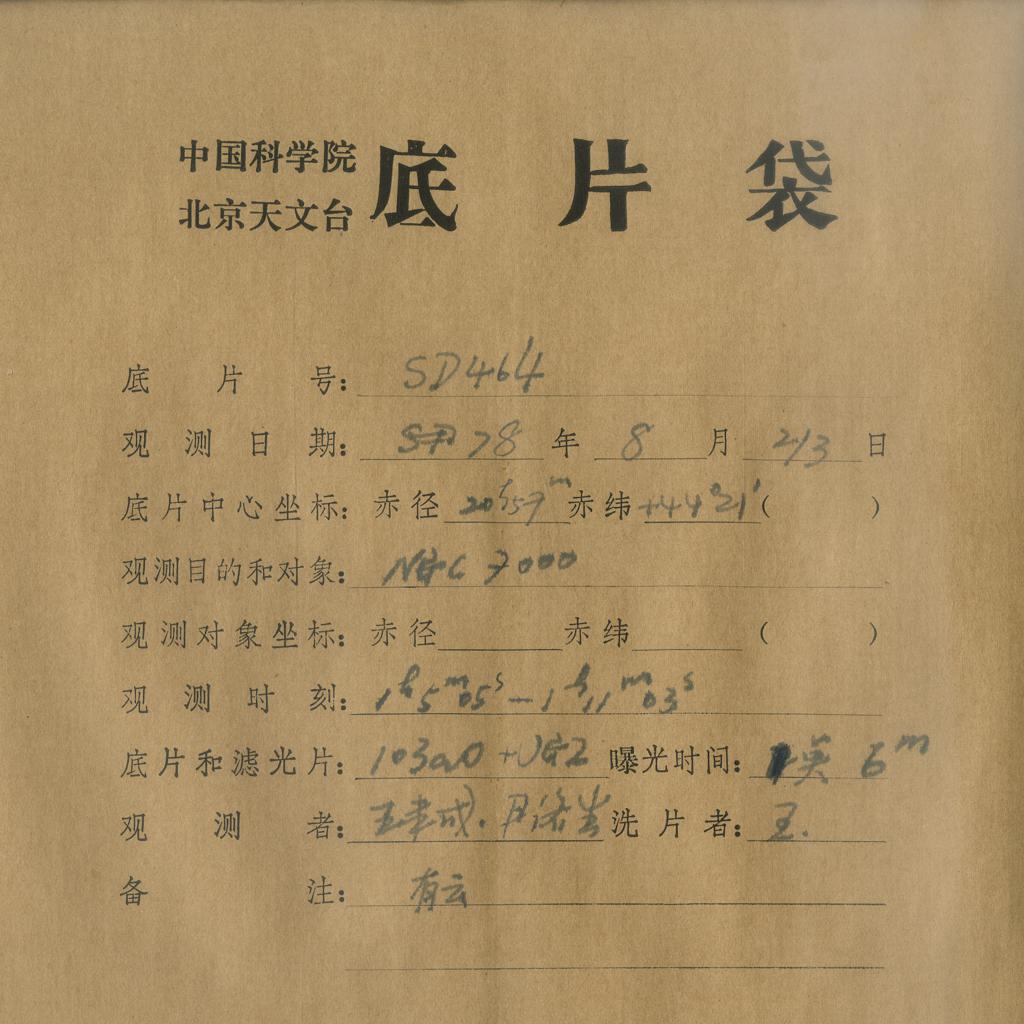 中国科学院
北京天文台
底片袋
底片号: SD464
观测日期: 78年 8月 2/3日
底片中心坐标: 赤径 20h57m 赤纬 +44°21′ ( )
观测目的和对象: NGC 7000
观测对象坐标: 赤径 赤纬 ( )
观测时刻: 1h5m05s — 1h11m03s
底片和滤光片: 103aO + UG2 曝光时间: 6m
观测者: 洗片者: 王.
备注: 有云